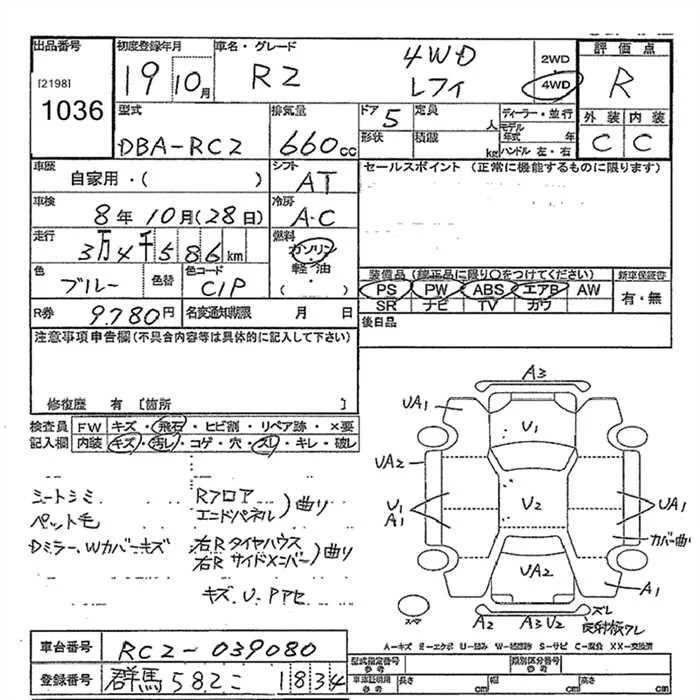 出品番号 [2198] 1036
初度登録年月 19 10月
車名・グレード R2 4WD レフィ
2WD 4WD
評価点 R
外装 内装
C C
型式 DBA-RC2
排気量 660cc
ドア 5
形状
定員 人
積載 kg
ディーラー・並行
モデル年式 年
ハンドル 左・右
車歴 自家用・( )
シフト AT
車検 8年10月(28日)
冷房 A-C
走行 3万4千586km
燃料 ガソリン・軽油・( )
色 ブルー 色替
色コード C1P
R券 9.780円
名変通知期限 月 日
セールスポイント (正常に機能するものに限ります)
装備品 (純正品に限り○をつけてください)
PS PW ABS エアB AW
SR ナビ TV カワ
新車保証書 有・無
後日品
注意事項申告欄(不具合内容等は具体的に記入して下さい)
修復歴 有 [箇所 ]
検査員記入欄
FW キズ・飛石・ヒビ割・リペア跡・×要
内装 キズ・汚レ・コゲ・穴・スレ・キレ・破レ
シートシミ
ペット毛
Dミラー、Wカバーキズ
Rフロア
エンドパネル )曲リ
右Rタイヤハウス
右Rサイドメンバー )曲リ
キズ、U、Pアセ
A3
UA1
U1
UA2
U1
A1
U2
UA1
カバー曲
UA2
A1
スレ
反射板ワレ
A2 A3 U2
スペア
A-キズ E-エクボ U-凹み W-補修跡 S-サビ C-腐食 XX-交換済
車台番号 RC2-039080
登録番号 群馬 582 こ 1834
型式指定番号 参考
類別区分番号 参考
車庫証明用 参考
長さ cm 幅 cm 高さ cm